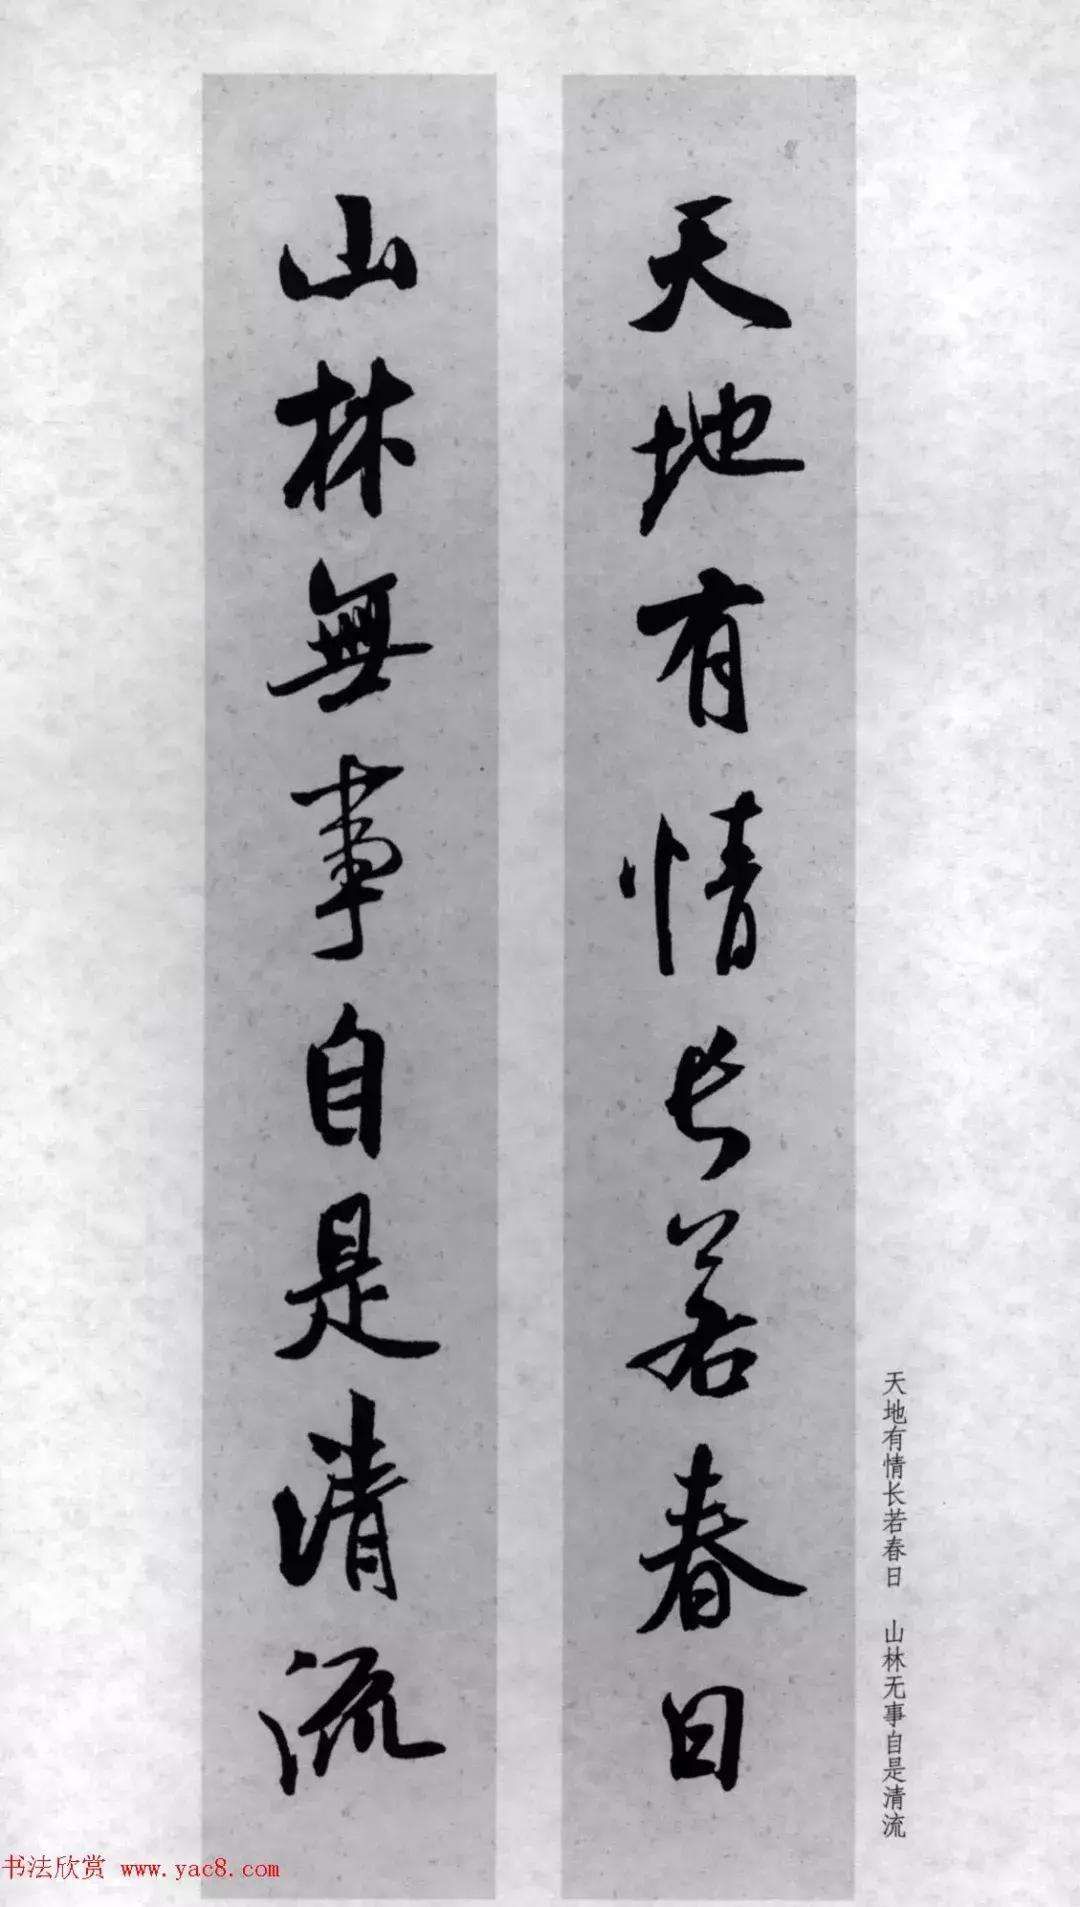 天地有情長若春日
山林無事自是清流
天地有情长若春日 山林无事自是清流
书法欣赏 www.yac8.com